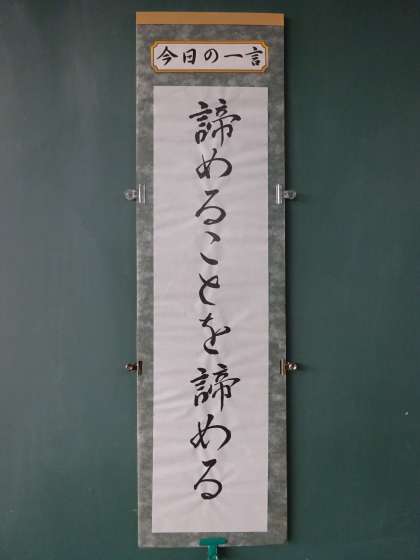 今日の一言
諦めることを諦める